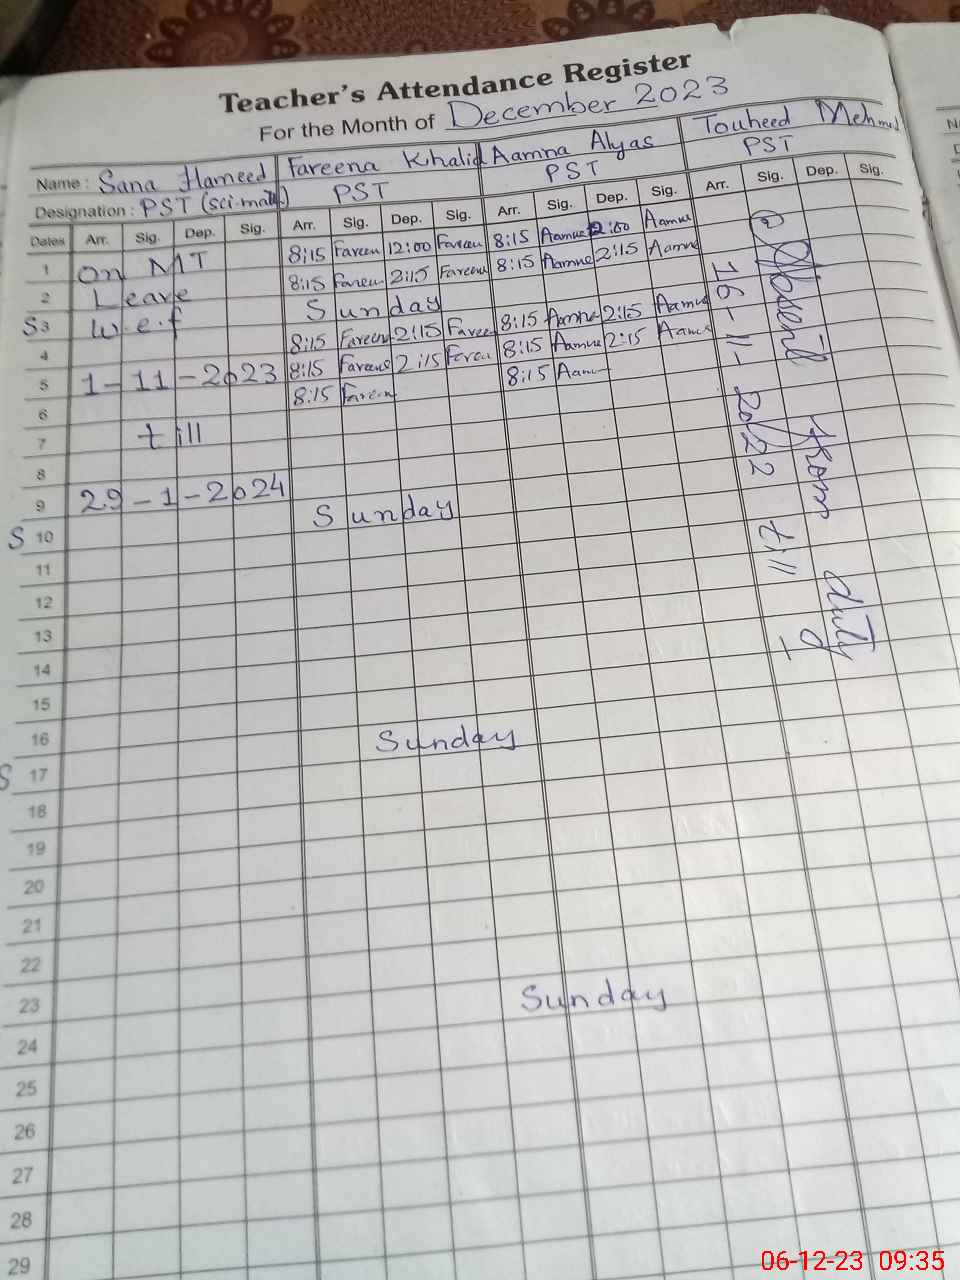 Teacher's Attendance Register
For the Month of December 2023
Name : Sana Hameed Fareena Khalid Aamna Alyas Touheed Mehmud
Designation : PST (sci-math) PST PST PST
Dates Arr. Sig. Dep. Sig. Arr. Sig. Dep. Sig. Arr. Sig. Dep. Sig. Arr. Sig. Dep. Sig.
1 On MT 8:15 Fareen 12:00 Fareen 8:15 Aamne 12:00 Aamne
2 Leave 8:15 Fareen 2:15 Fareena 8:15 Aamne 2:15 Aamne
S 3 w.e.f Sunday
4 8:15 Fareen 2:15 Fareen 8:15 Aamne 2:15 Aamne
5 1-11-2023 8:15 Fareena 2:15 Fareen 8:15 Aamne 2:15 Aamne
6 8:15 Fareen 8:15 Aamn
7 till
8
9 29-1-2024
S 10 Sunday
11
12
13
14
15
16
S 17 Sunday
18
19
20
21
22
23
24 Sunday
25
26
27
28
29
Absent from duty
16-11-2022 till
06-12-23 09:35